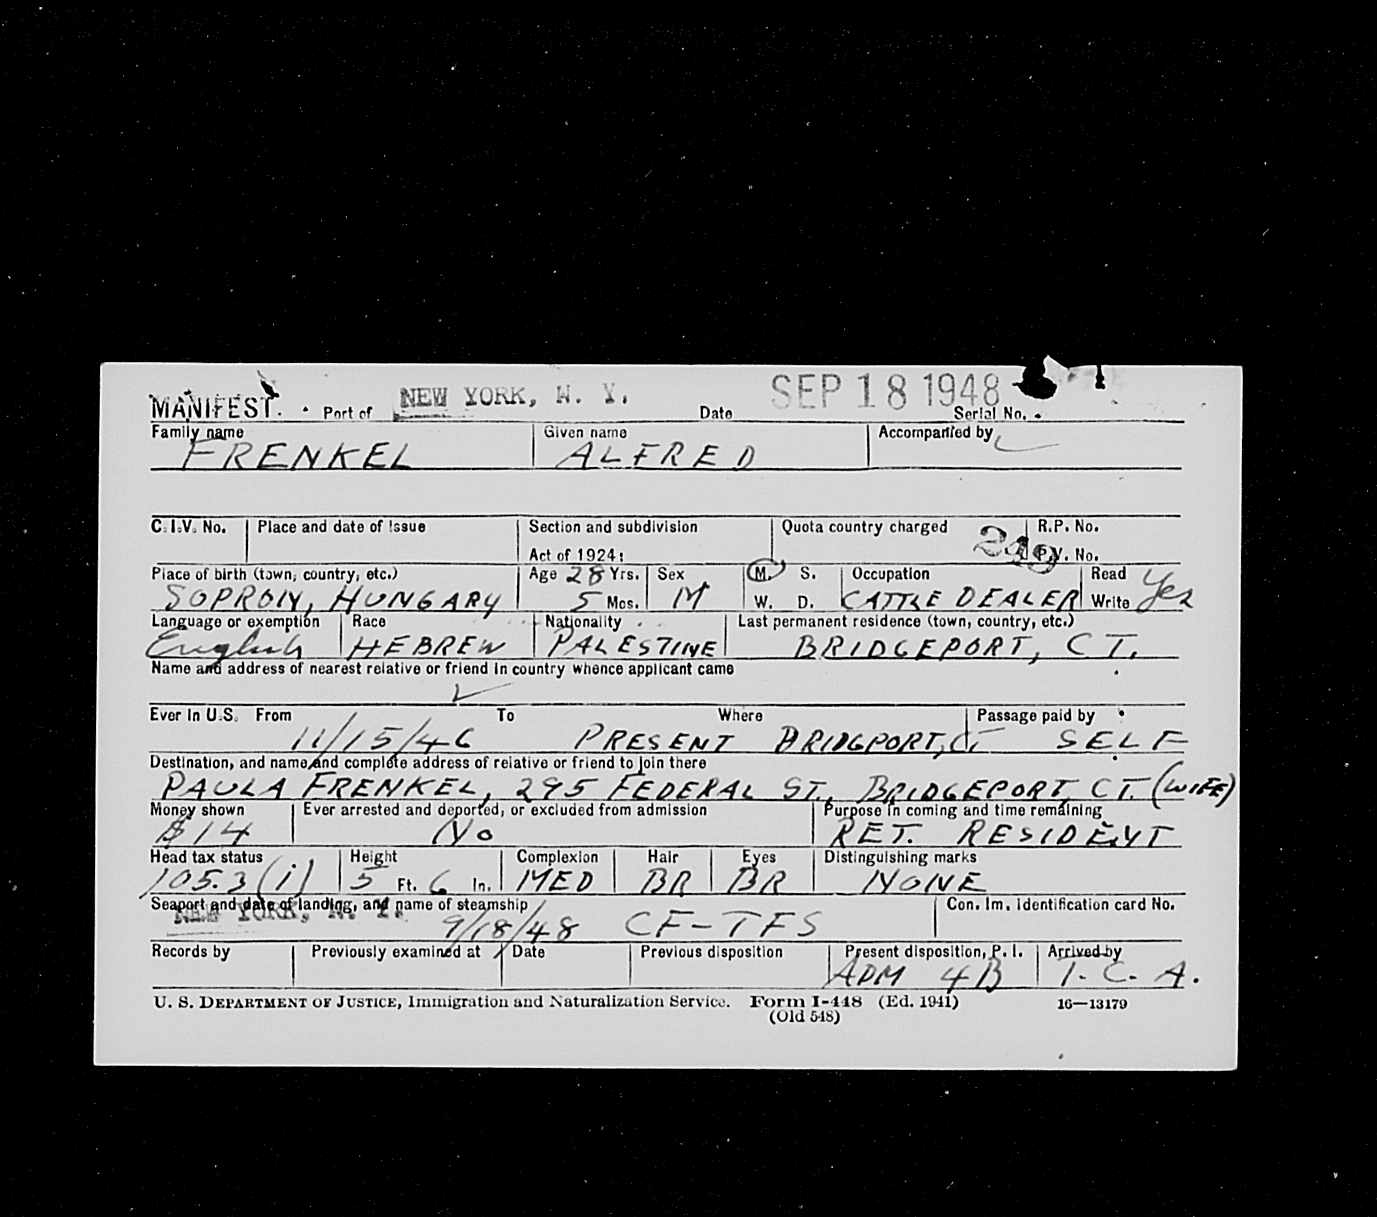 MANIFEST. Port of NEW YORK, N. Y. Date SEP 18 1948 Serial No.
Family name Given name Accompanied by
FRENKEL ALFRED
C.I.V. No. Place and date of issue Section and subdivision Quota country charged R.P. No.
Act of 1924: P.V. No.
Place of birth (town, country, etc.) Age 28 Yrs. Sex M. S. Occupation Read Yes
SOPRON, HUNGARY 5 Mos. M W. D. CATTLE DEALER Write
Language or exemption Race Nationality Last permanent residence (town, country, etc.)
English HEBREW PALESTINE BRIDGEPORT, CT.
Name and address of nearest relative or friend in country whence applicant came
Ever in U.S. From To Where Passage paid by
11/15/46 PRESENT BRIDGPORT, CT SELF
Destination, and name and complete address of relative or friend to join there
PAULA FRENKEL, 295 FEDERAL ST., BRIDGEPORT, CT. (WIFE)
Money shown Ever arrested and deported, or excluded from admission Purpose in coming and time remaining
$14 No RET. RESIDENT
Head tax status Height Complexion Hair Eyes Distinguishing marks
105.3(i) 5 Ft. 6 In. MED BR BR NONE
Seaport and date of landing, and name of steamship Con. Im. Identification card No.
NEW YORK, N. Y. 9/18/48 CF-TFS
Records by Previously examined at Date Previous disposition Present disposition, P. I. Arrived by
ADM 4B T. C. A.
U. S. DEPARTMENT OF JUSTICE, Immigration and Naturalization Service. Form I-448 (Ed. 1941) 16—13179
(Old 548)